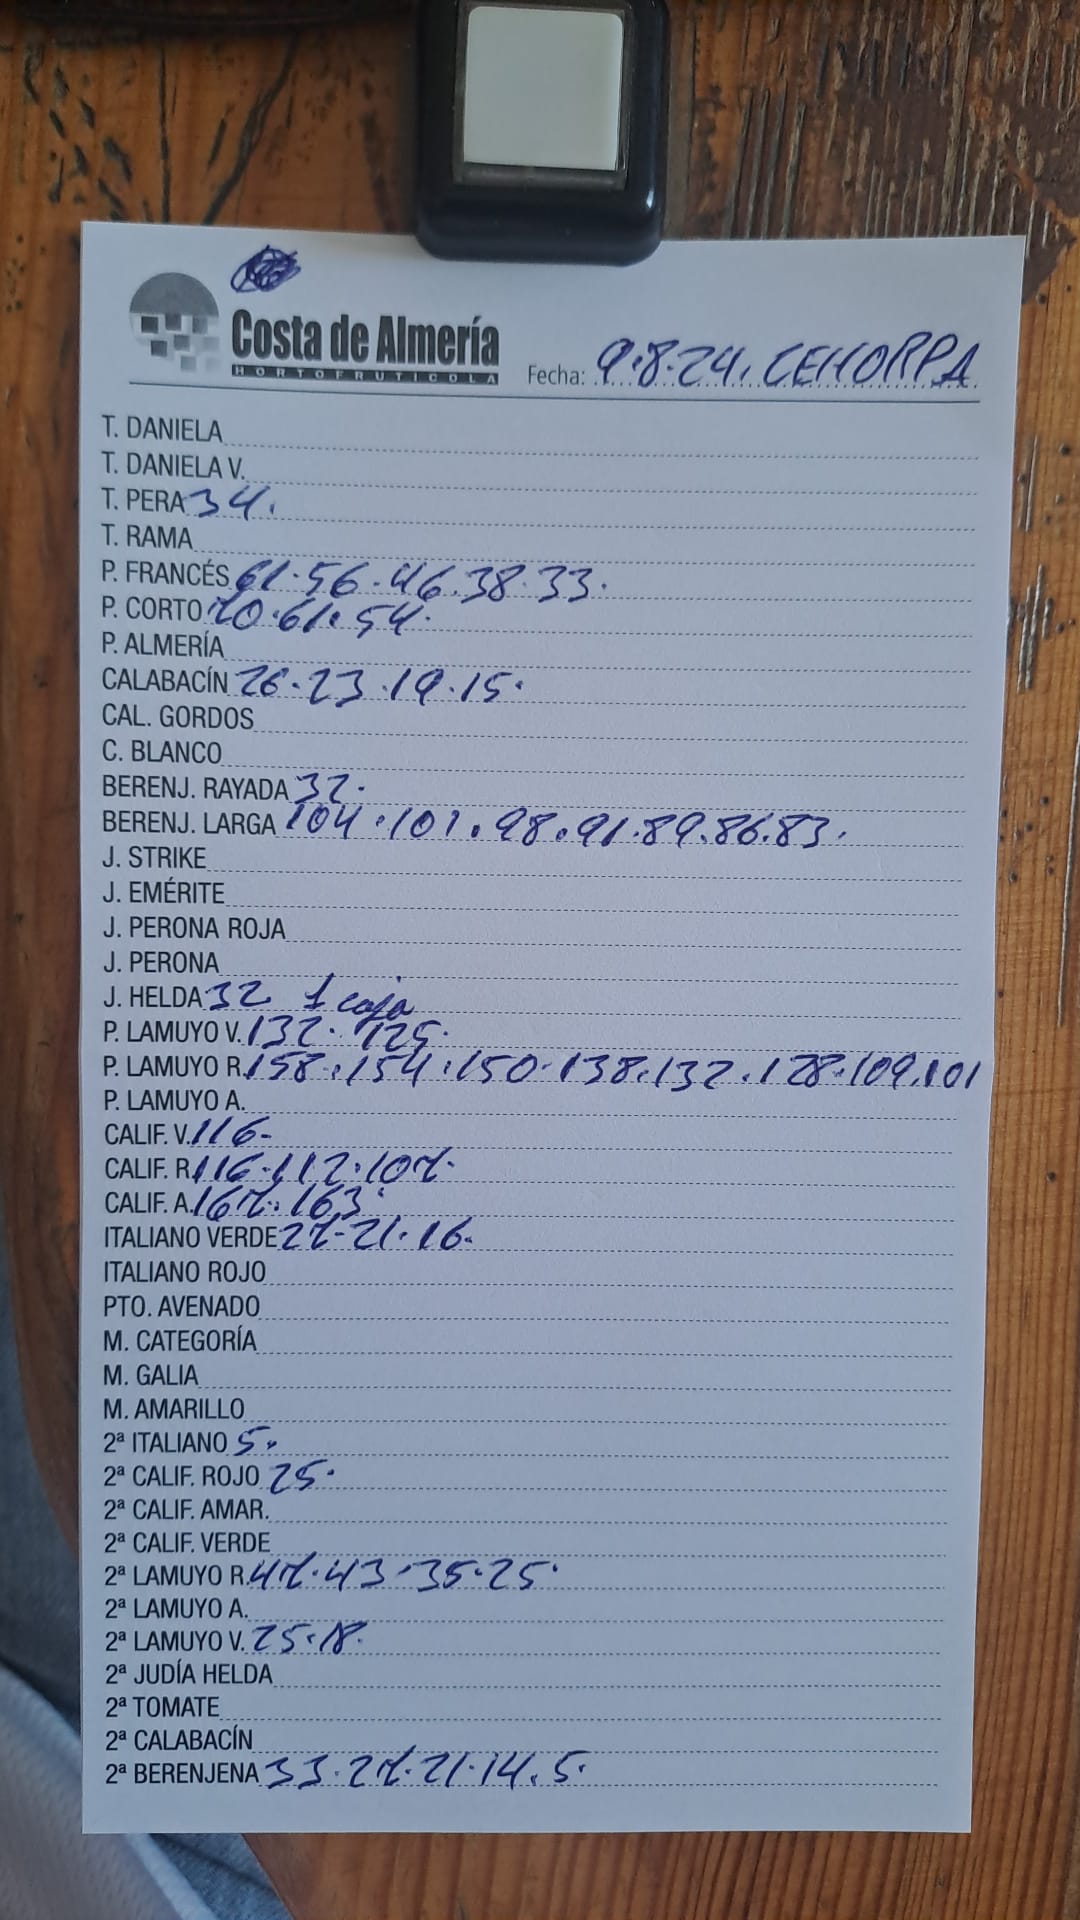 Costa de Almería
HORTOFRUTICOLA
Fecha: 9.8.24. CEHORPA
T. DANIELA
T. DANIELA V.
T. PERA 34.
T. RAMA
P. FRANCÉS 61.56.46.38.33.
P. CORTO 70.61.54.
P. ALMERÍA
CALABACÍN 26.23.19.15.
CAL. GORDOS
C. BLANCO
BERENJ. RAYADA 32.
BERENJ. LARGA 104.101.98.91.89.86.83.
J. STRIKE
J. EMÉRITE
J. PERONA ROJA
J. PERONA
J. HELDA 32 1 caja
P. LAMUYO V. 132. 125.
P. LAMUYO R. 158.154.150.138.132.128.109.101
P. LAMUYO A.
CALIF. V. 116-
CALIF. R. 116.112.107.
CALIF. A. 167.163.
ITALIANO VERDE 27-21.16.
ITALIANO ROJO
PTO. AVENADO
M. CATEGORÍA
M. GALIA
M. AMARILLO
2ª ITALIANO 5.
2ª CALIF. ROJO 25.
2ª CALIF. AMAR.
2ª CALIF. VERDE
2ª LAMUYO R. 47.43.35.25.
2ª LAMUYO A.
2ª LAMUYO V. 25.18.
2ª JUDÍA HELDA
2ª TOMATE
2ª CALABACÍN
2ª BERENJENA 33.27.21.14.5.